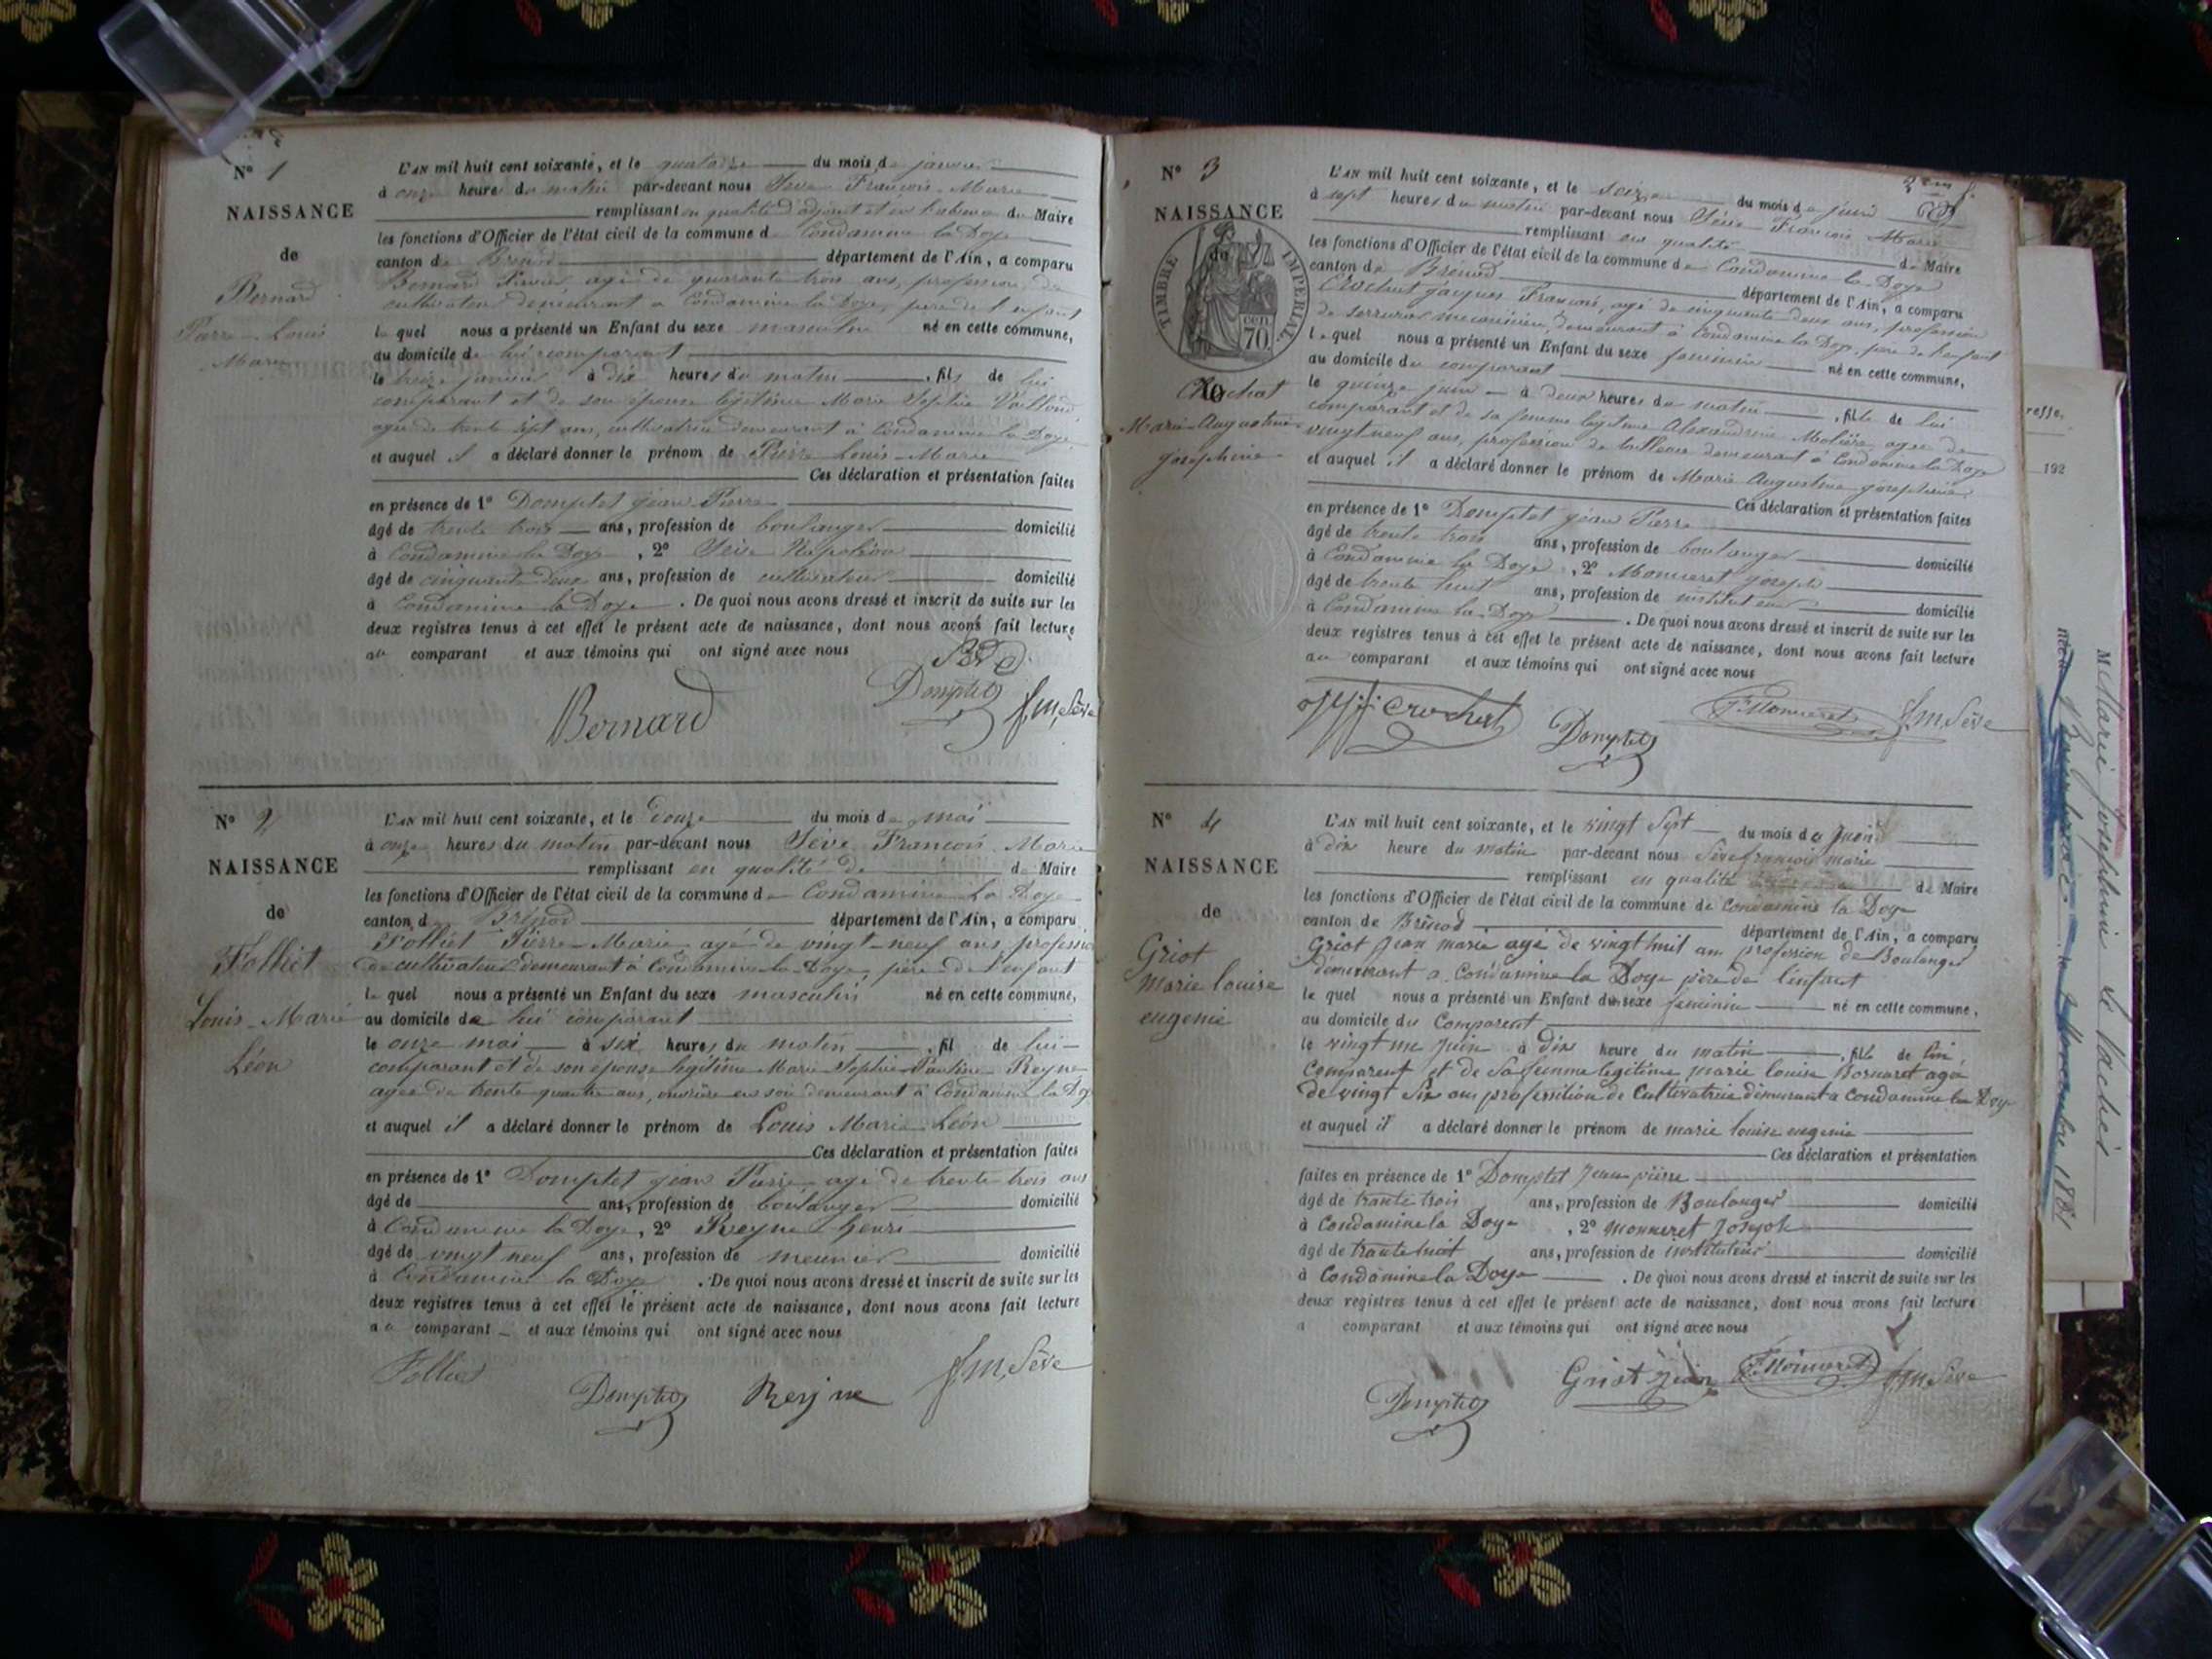 N° 1
NAISSANCE
de
Bernard
Pierre Louis
Marie
L'AN mil huit cent soixante, et le quatorze du mois de janvier
à onze heures du matin par-devant nous Sève François Marie
remplissant en qualité d'adjoint et en l'absence du Maire
les fonctions d'Officier de l'état civil de la commune de Condamine la Doye
canton de Brénod département de l'Ain, a comparu
Bernard agé de quarante trois ans, profession de
cultivateur demeurant a Condamine la Doye, père de l'enfant
lequel nous a présenté un Enfant du sexe masculin né en cette commune,
du domicile de lui comparant
le treize janvier à dix heures du matin, fils de lui
comparant et de son épouse légitime Marie Sophie
agée de trente sept ans, cultivatrice demeurant à Condamine la Doye
et auquel il a déclaré donner le prénom de Pierre Louis Marie
Ces déclaration et présentation faites
en présence de 1° Domptet jean Pierre
âgé de trente trois ans, profession de boulanger domicilié
à Condamine la Doye, 2° Sève Napoléon
âgé de cinquante deux ans, profession de cultivateur domicilié
à Condamine la Doye. De quoi nous avons dressé et inscrit de suite sur les
deux registres tenus à cet effet le présent acte de naissance, dont nous avons fait lecture
au comparant et aux témoins qui ont signé avec nous
Domptet
Bernard fm, Sève
N° 2
NAISSANCE
de
Folliet
Louis-Marie
Léon
L'AN mil huit cent soixante, et le douze du mois de mai
à onze heures du matin par-devant nous Sève François Marie
remplissant en qualité de de Maire
les fonctions d'Officier de l'état civil de la commune de Condamine La Doye
canton de Brénod département de l'Ain, a comparu
Folliet Pierre-Marie agé de vingt-neuf ans, profession
de cultivateur demeurant à Condamine la Doye, père de l'enfant
lequel nous a présenté un Enfant du sexe masculin né en cette commune,
au domicile de lui comparant
le onze mai à six heures du matin, fil de lui
comparant et de son épouse légitime Marie Sophie Pauline Reyne
agée de trente quatre ans, ouvrière en soie demeurant à Condamine la Doye
et auquel il a déclaré donner le prénom de Louis Marie Léon
Ces déclaration et présentation faites
en présence de 1° Domptet jean Pierre agé de trente trois ans
âgé de ans, profession de boulanger domicilié
à Condamine la Doye, 2° Reyne henri
âgé de vingt neuf ans, profession de meunier domicilié
à Condamine la Doye. De quoi nous avons dressé et inscrit de suite sur les
deux registres tenus à cet effet le présent acte de naissance, dont nous avons fait lecture
au comparant et aux témoins qui ont signé avec nous
Folliet Domptet Reyne fm, Sève
N° 3
NAISSANCE
de
TIMBRE IMPERIAL
70 cen
Crochat
Marie Augustine
joséphine
L'AN mil huit cent soixante, et le seize du mois de juin
à sept heures du matin par-devant nous Sève François Marie
remplissant en qualité de Maire
les fonctions d'Officier de l'état civil de la commune de Condamine la Doye
canton de Brénod département de l'Ain, a comparu
Crochat jacques François, agé de cinquante deux ans, profession
de serrurier mecanicien, demeurant à Condamine la Doye, père de l'enfant
lequel nous a présenté un Enfant du sexe féminin né en cette commune,
au domicile du comparant
le quinze juin à deux heures du matin, fille de lui
comparant et de sa femme légitime Alexandrine Molière, agée de
vingt neuf ans, profession de tailleuse demeurant à Condamine la Doye
et auquel il a déclaré donner le prénom de Marie Augustine joséphine
Ces déclaration et présentation faites
en présence de 1° Domptet jean Pierre
âgé de trente trois ans, profession de boulanger domicilié
à Condamine la Doye, 2° Monneret joseph
âgé de trente huit ans, profession de instituteur domicilié
à Condamine la Doye. De quoi nous avons dressé et inscrit de suite sur les
deux registres tenus à cet effet le présent acte de naissance, dont nous avons fait lecture
au comparant et aux témoins qui ont signé avec nous
Crochat Domptet Monneret fm, Sève
N° 4
NAISSANCE
de
Griot
Marie louise
eugenie
L'AN mil huit cent soixante, et le vingt Sept du mois de Juin
à dix heure du matin par-devant nous Sève françois marie
remplissant en qualité de Maire
les fonctions d'Officier de l'état civil de la commune de Condamine la Doye
canton de Brénod département de l'Ain, a comparu
Griot Jean marie agé de vingt huit ans profession de Boulanger
demeurant a Condamine la Doye père de l'enfant
lequel nous a présenté un Enfant du sexe feminin né en cette commune,
au domicile du Comparent
le vingt Juin à dix heure du matin, fille de lui
Comparent et de Sa femme legitime marie louise Bornaret agé
de vingt Six ans professition de Cultivatrice demeurant a Condamine la Doye
et auquel il a déclaré donner le prénom de marie louise eugenie
Ces déclaration et présentation
faites en présence de 1° Domptet Jean pierre
âgé de trante trois ans, profession de Boulanger domicilié
à Condamine la Doye, 2° Monneret Joseph
âgé de trante huit ans, profession de instituteur domicilié
à Condamine la Doye. De quoi nous avons dressé et inscrit de suite sur les
deux registres tenus à cet effet le présent acte de naissance, dont nous avons fait lecture
a comparant et aux témoins qui ont signé avec nous
Domptet Griot Jean Monneret fm Sève
resse,
192
M Marie joséphine
1881